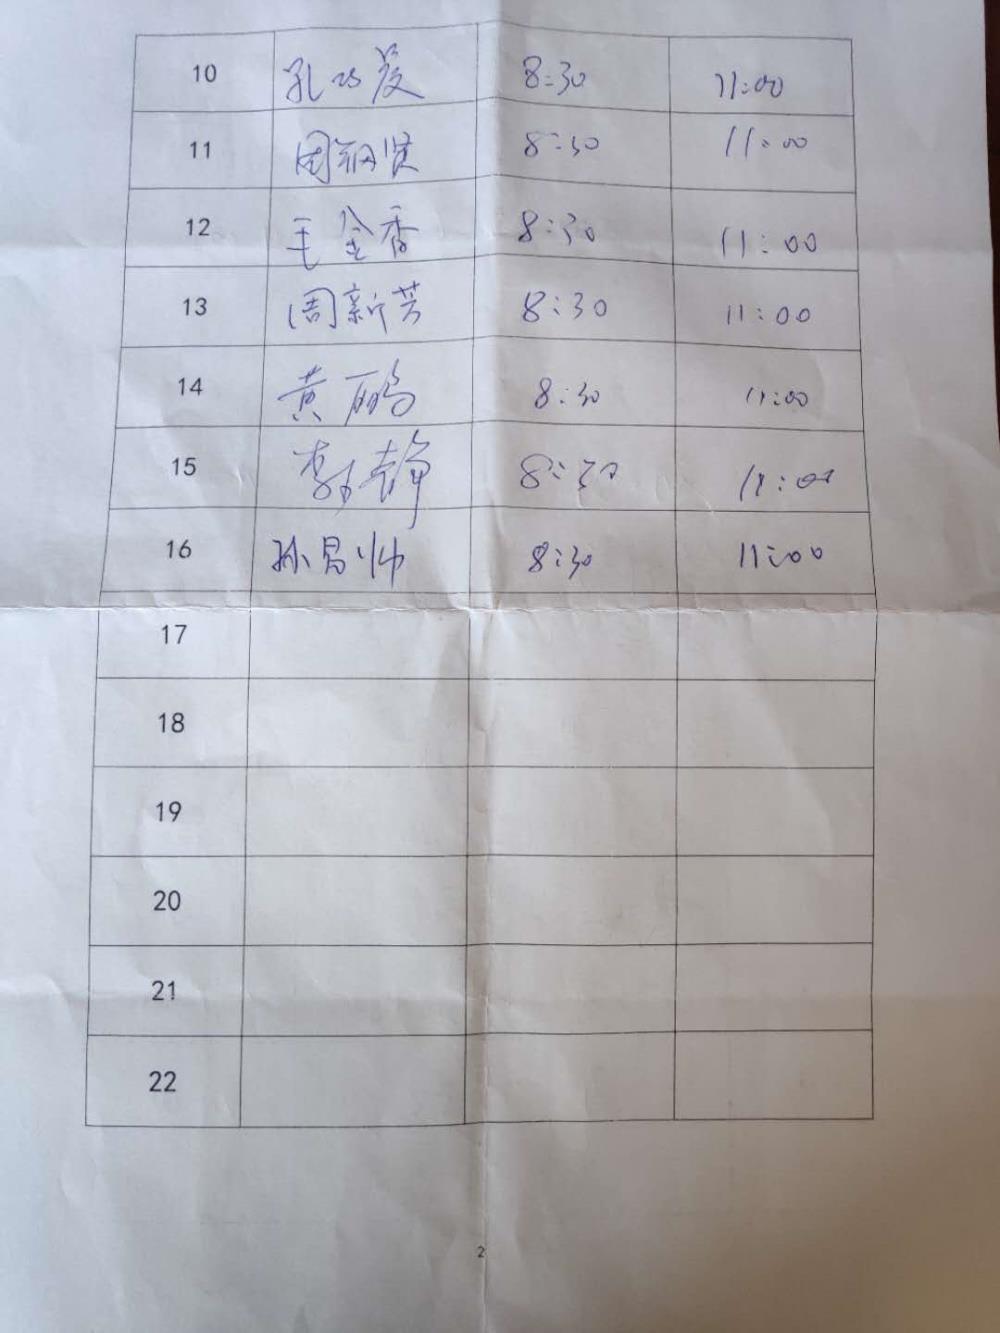 10 孔 8:30 11:00
11 周 贤 8:30 11:00
12 毛金香 8:30 11:00
13 周新芳 8:30 11:00
14 黄鹂 8:30 11:00
15 静 8:30 11:00
16 孙昌帅 8:30 11:00
17
18
19
20
21
22
2